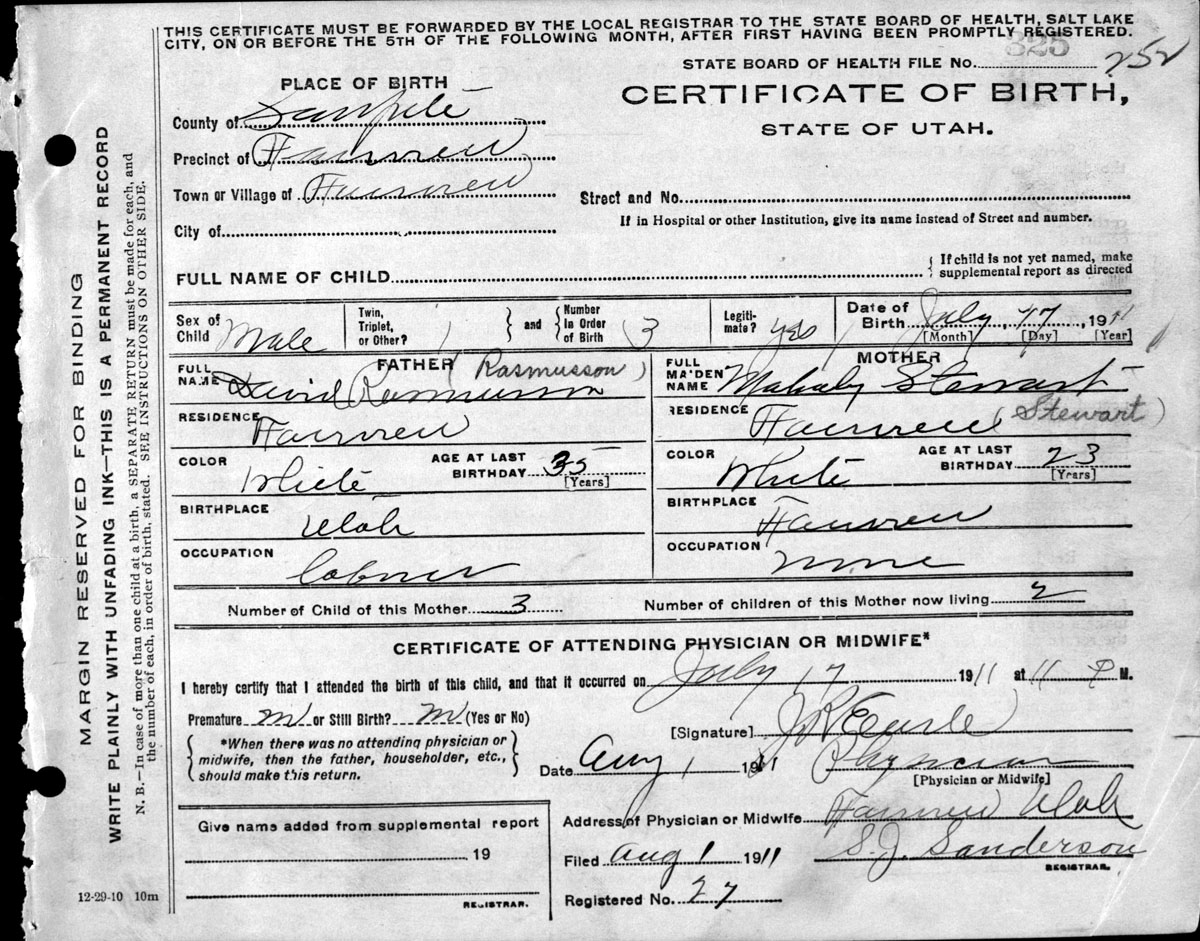 THIS CERTIFICATE MUST BE FORWARDED BY THE LOCAL REGISTRAR TO THE STATE BOARD OF HEALTH, SALT LAKE
CITY, ON OR BEFORE THE 5TH OF THE FOLLOWING MONTH, AFTER FIRST HAVING BEEN PROMPTLY REGISTERED.
325
STATE BOARD OF HEALTH FILE No. 252
PLACE OF BIRTH
CERTIFICATE OF BIRTH,
STATE OF UTAH.
County of Sanpete
Precinct of Fairview
Town or Village of Fairview
Street and No.
If in Hospital or other Institution, give its name instead of Street and number.
City of
FULL NAME OF CHILD
{ If child is not yet named, make
supplemental report as directed
Sex of Child Male
Twin, Triplet, or Other? 1 } and { Number In Order of Birth 3
Legiti-mate? yes
Date of Birth July, 17, 1911
[Month] [Day] [Year]
FATHER
FULL NAME David Rasmusson (Rasmusson)
RESIDENCE Fairview
COLOR White
AGE AT LAST BIRTHDAY 35
[Years]
BIRTHPLACE Utah
OCCUPATION Laborer
MOTHER
FULL MAIDEN NAME Mahaly Stewart
RESIDENCE Fairview (Stewart)
COLOR White
AGE AT LAST BIRTHDAY 23
[Years]
BIRTHPLACE Fairview
OCCUPATION none
Number of Child of this Mother 3
Number of children of this Mother now living 2
CERTIFICATE OF ATTENDING PHYSICIAN OR MIDWIFE*
I hereby certify that I attended the birth of this child, and that it occurred on July 17 1911 at 11 P M.
Premature no or Still Birth? no (Yes or No)
{ *When there was no attending physician or
midwife, then the father, householder, etc.,
should make this return. }
[Signature]
Date Aug 1 1911 Physician
[Physician or Midwife]
Address of Physician or Midwife Fairview Utah
Filed Aug 1 1911 S.J. Sanderson
REGISTRAR.
Registered No. 27
Give name added from supplemental report
19
REGISTRAR.
12-29-10 10m
MARGIN RESERVED FOR BINDING
WRITE PLAINLY WITH UNFADING INK—THIS IS A PERMANENT RECORD
N. B.—In case of more than one child at a birth, a SEPARATE RETURN must be made for each, and
the number of each, in order of birth, stated. SEE INSTRUCTIONS ON OTHER SIDE.